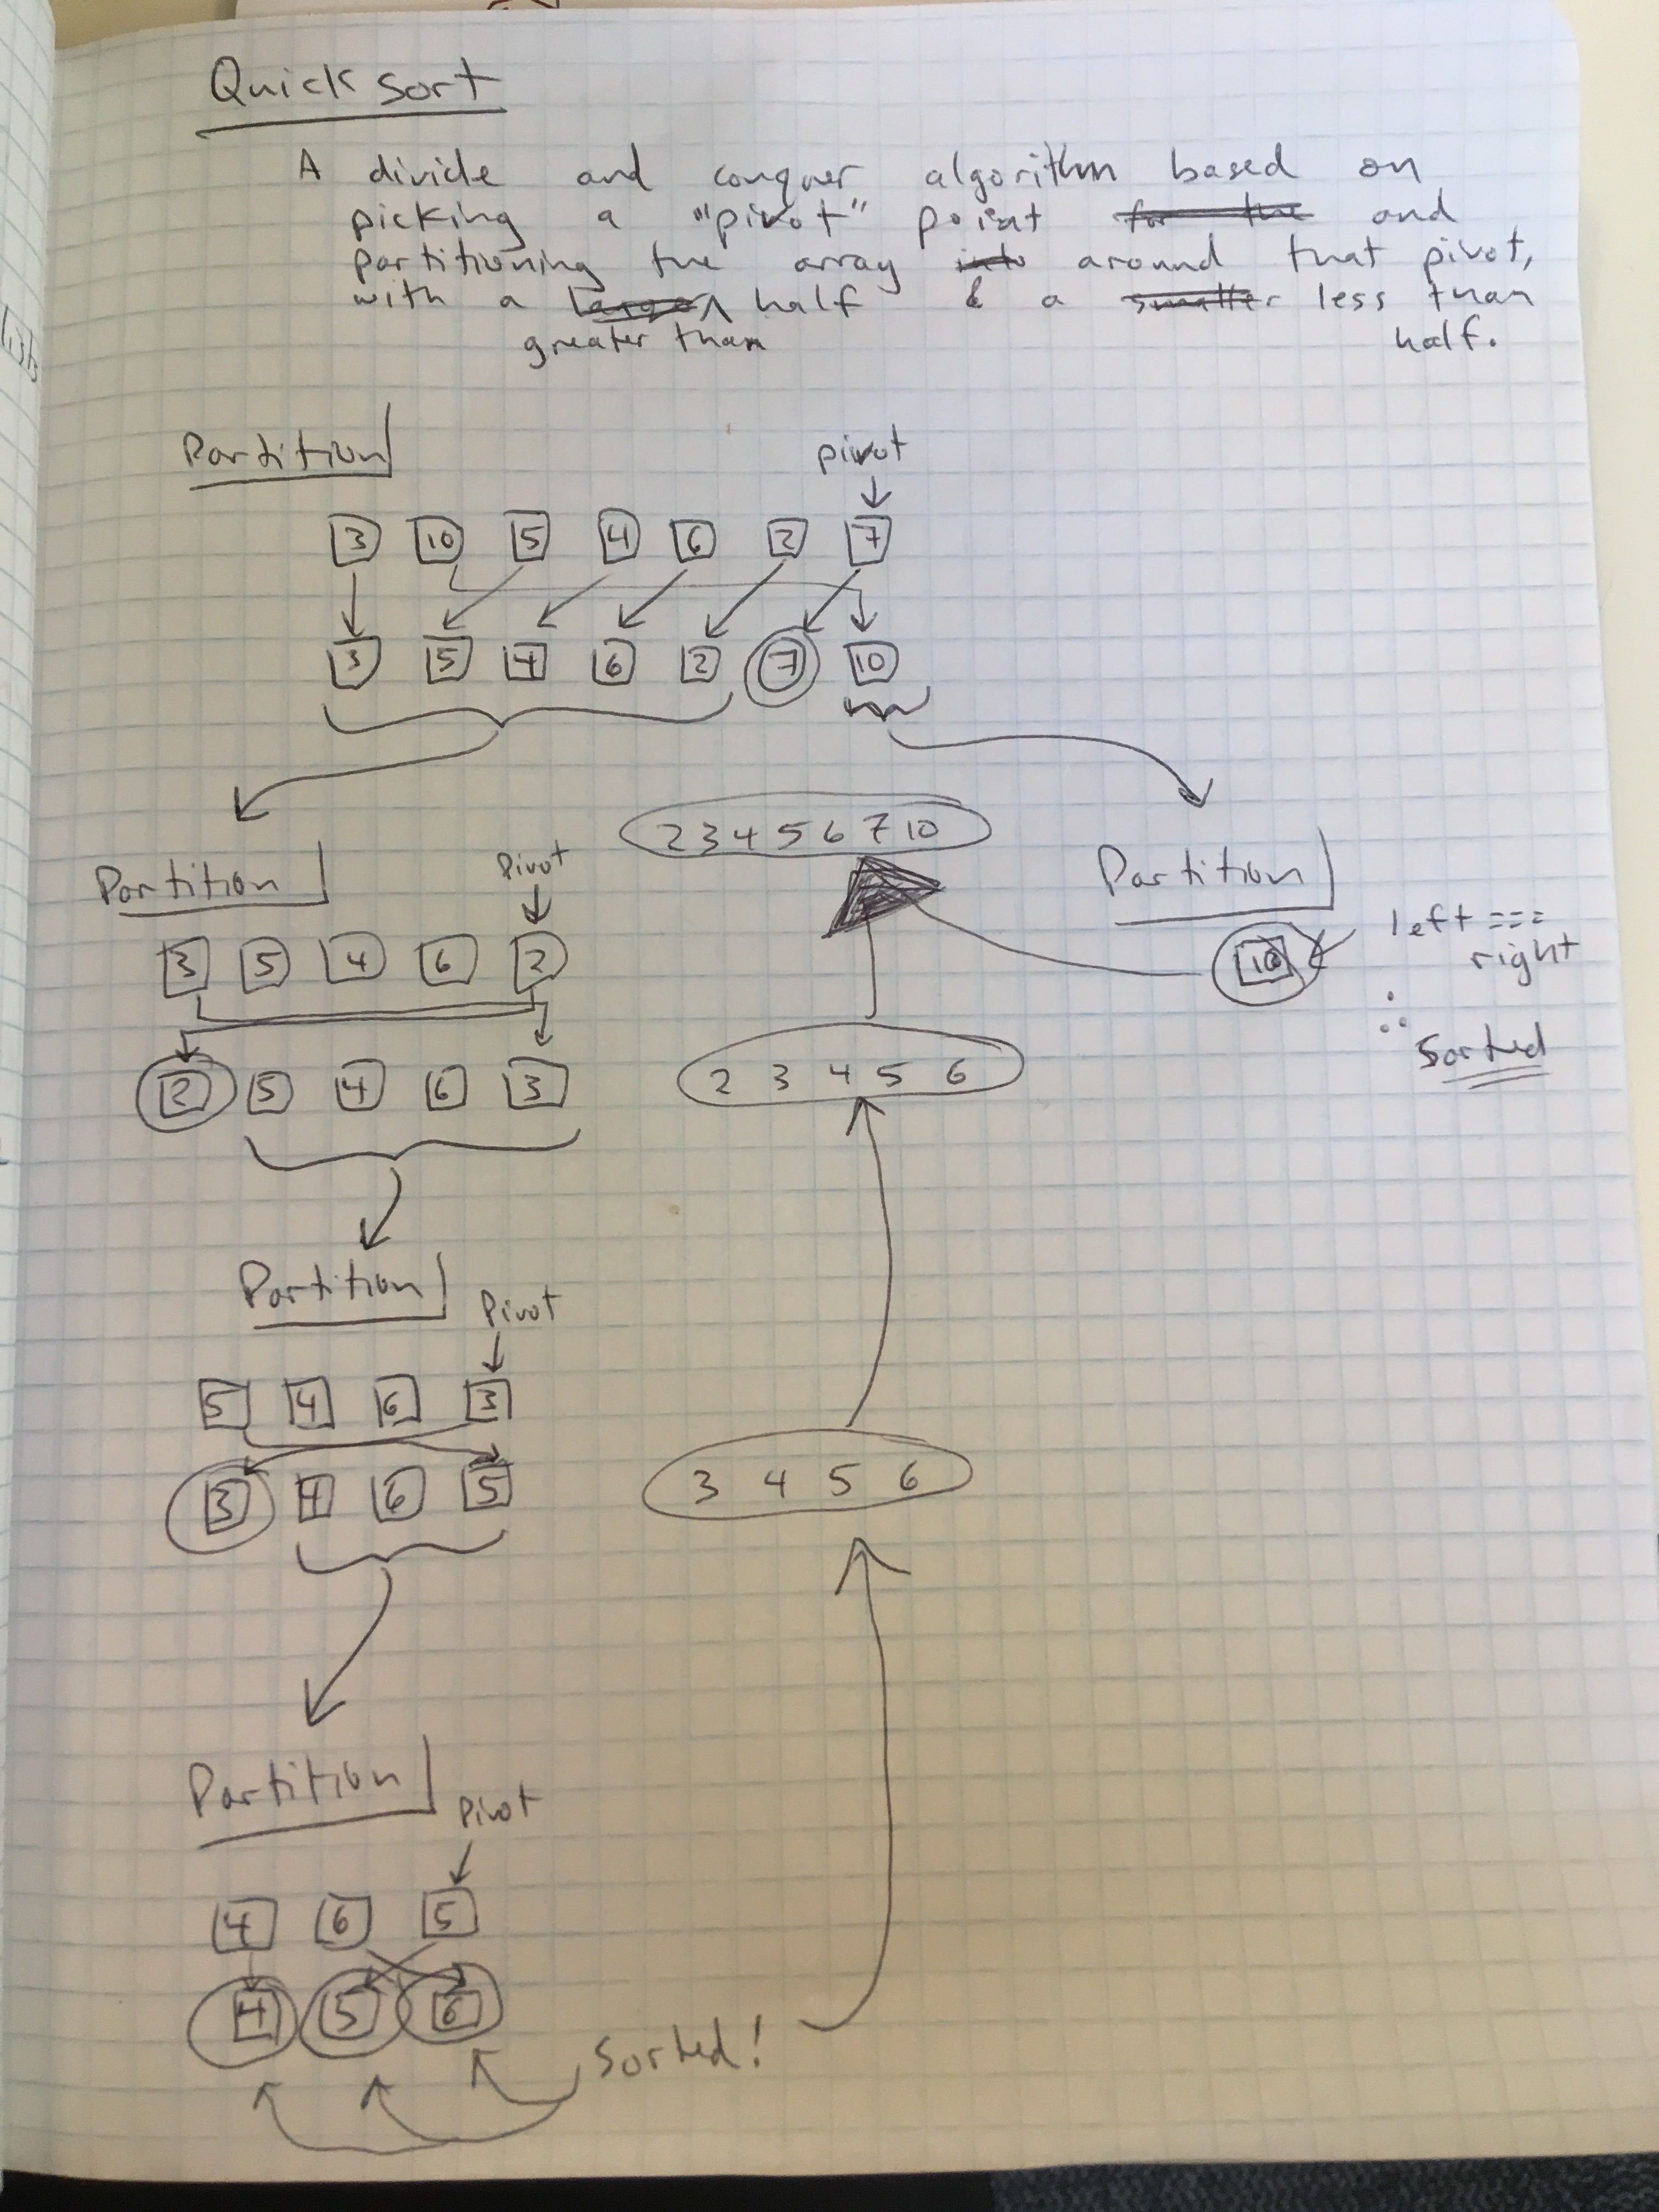 Quick Sort
A divide and conquer algorithm based on
picking a "pivot" point for the and
partitioning the array into around that pivot,
with a larger half & a smaller less than
greater than half.
Partition
pivot
3 10 5 4 6 2 7
3 5 4 6 2 7 10
2 3 4 5 6 7 10
Partition
Pivot
3 5 4 6 2
2 5 4 6 3
Partition
10
left ===
right
∴
Sorted
2 3 4 5 6
Partition
Pivot
5 4 6 3
3 4 6 5
3 4 5 6
Partition
Pivot
4 6 5
4 5 6
Sorted!